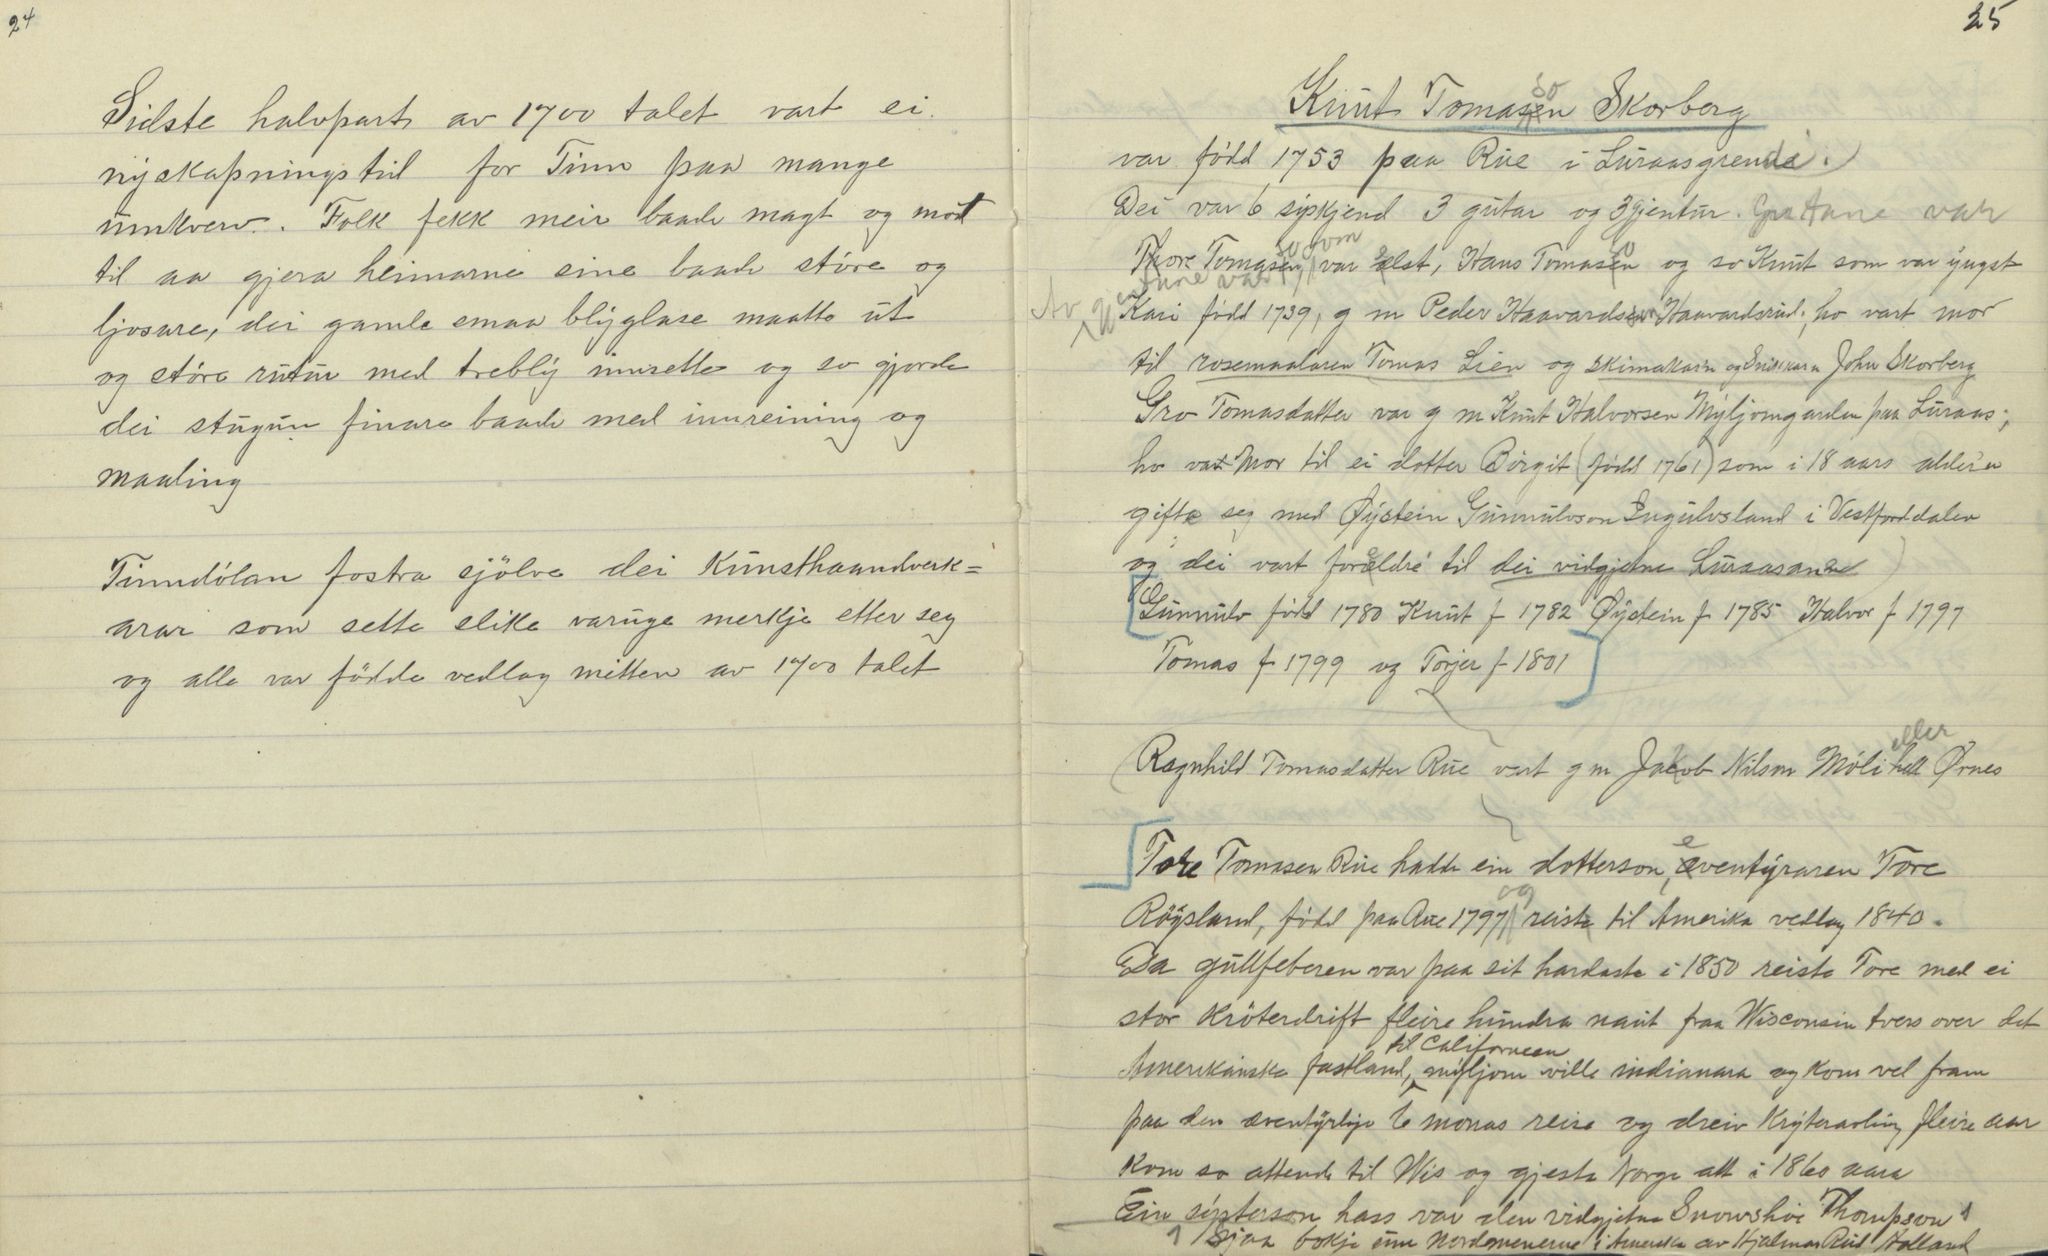 24
Sidste halvpart av 1700 talet vart ei
nyskapningstid for Tinn paa mange
umkverv. Folk fekk meir baade magt og mod
til aa gjera heimarne sine baade större og
ljosare, dei gamle smaa blyglase maatte ut
og störe rutur med trebly innsette og so gjorde
dei stugun finare baade med innreining og
maaling
Tinndölan fostra sjölve dei Kunsthaandverk=
arar som sette slike varuge merkje etter seg
og alle var födde vedlag mitten av 1700 talet
25
Knut Tomasson Skorberg
var född 1753 paa Rue i Luraasgrende.
Dei var 6 syskjend 3 gutar og 3 gjentur. Gutane var
Thore Tomasson som var elst, Hans Tomasson og so Knut som var yngst
Av gjentune var Kari född 1739, g m Peder Haavardson Haavardsrud, ho vart mor
til rosemaalaren Tomas Lien og skimakarn og Snikkara John Skorberg
Gro Tomasdatter var g m Knut Halvorsen Myljomgarden paa Luraas;
ho var Mor til ei dotter Birgit (född 1761) som i 18 aars alder'n
gifte seg med Øystein Gunnulvson Ingulvsland i Vestfjorddalen
og dei vart foreldre til dei vidgjetne Luraasane
Gunnulv född 1780 Knut f 1782 Øystein f 1785 Halvor f 1797
Tomas f 1799 og Torjer f 1801
Ragnhild Tomasdatter Rue vart g m Jakob Nilson Möli eller Ørnes
Tore Tomasen Rue hadde ein dotterson, eventyraren Tore
Röysland, född paa Rue 1797 og reiste til Amerika vedlag 1840.
Da gullfeberen var paa sit hardaste i 1850 reiste Tore med ei
stor Kröterdrift fleire hundra naut fraa Wisconsin tvers over det
Amerikanske fastland, til Californien myljom ville indianara og kom vel fram
paa den æventyrlige 6 monas reise og dreiv Kryteravling fleire aar
Kom so attende til Wis og gjesta Norge att i 1860 aara
Ein systerson hass var den vidgjetne Snowshoe Thompson
Sjaa bokje um Nordmennerne i Amerika av Hjalmar Rud Holland